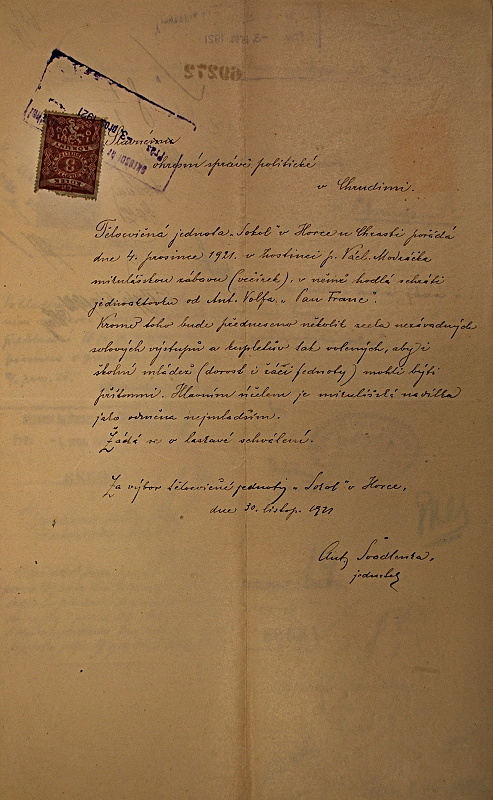 60272
Slavnému
okresní správě politické
v Chrudimi.
Tělocvičná jednota „Sokol" v Horce u Chrasti pořádá
dne 4. prosince 1921. v hostinci p. Václ. Modráčka
mikulášskou zábavu (večírek), v němž hodlá sehráti
jednoaktovku od Ant. Volfa „Pan Franc".
Kromě toho bude předneseno několik zcela nezávadných
solových výstupů a kupletův tak volených, aby i
školní mládež (dorost i žáci jednoty) mohli býti
přítomni. Hlavním účelem je mikulášská nadílka
jako odměna nejmladším.
Žádá se o laskavé schválení.
Za výbor tělocvičné jednoty „Sokol" v Horce,
dne 30. listop. 1921
Ant. Švadlenka,
jednatel